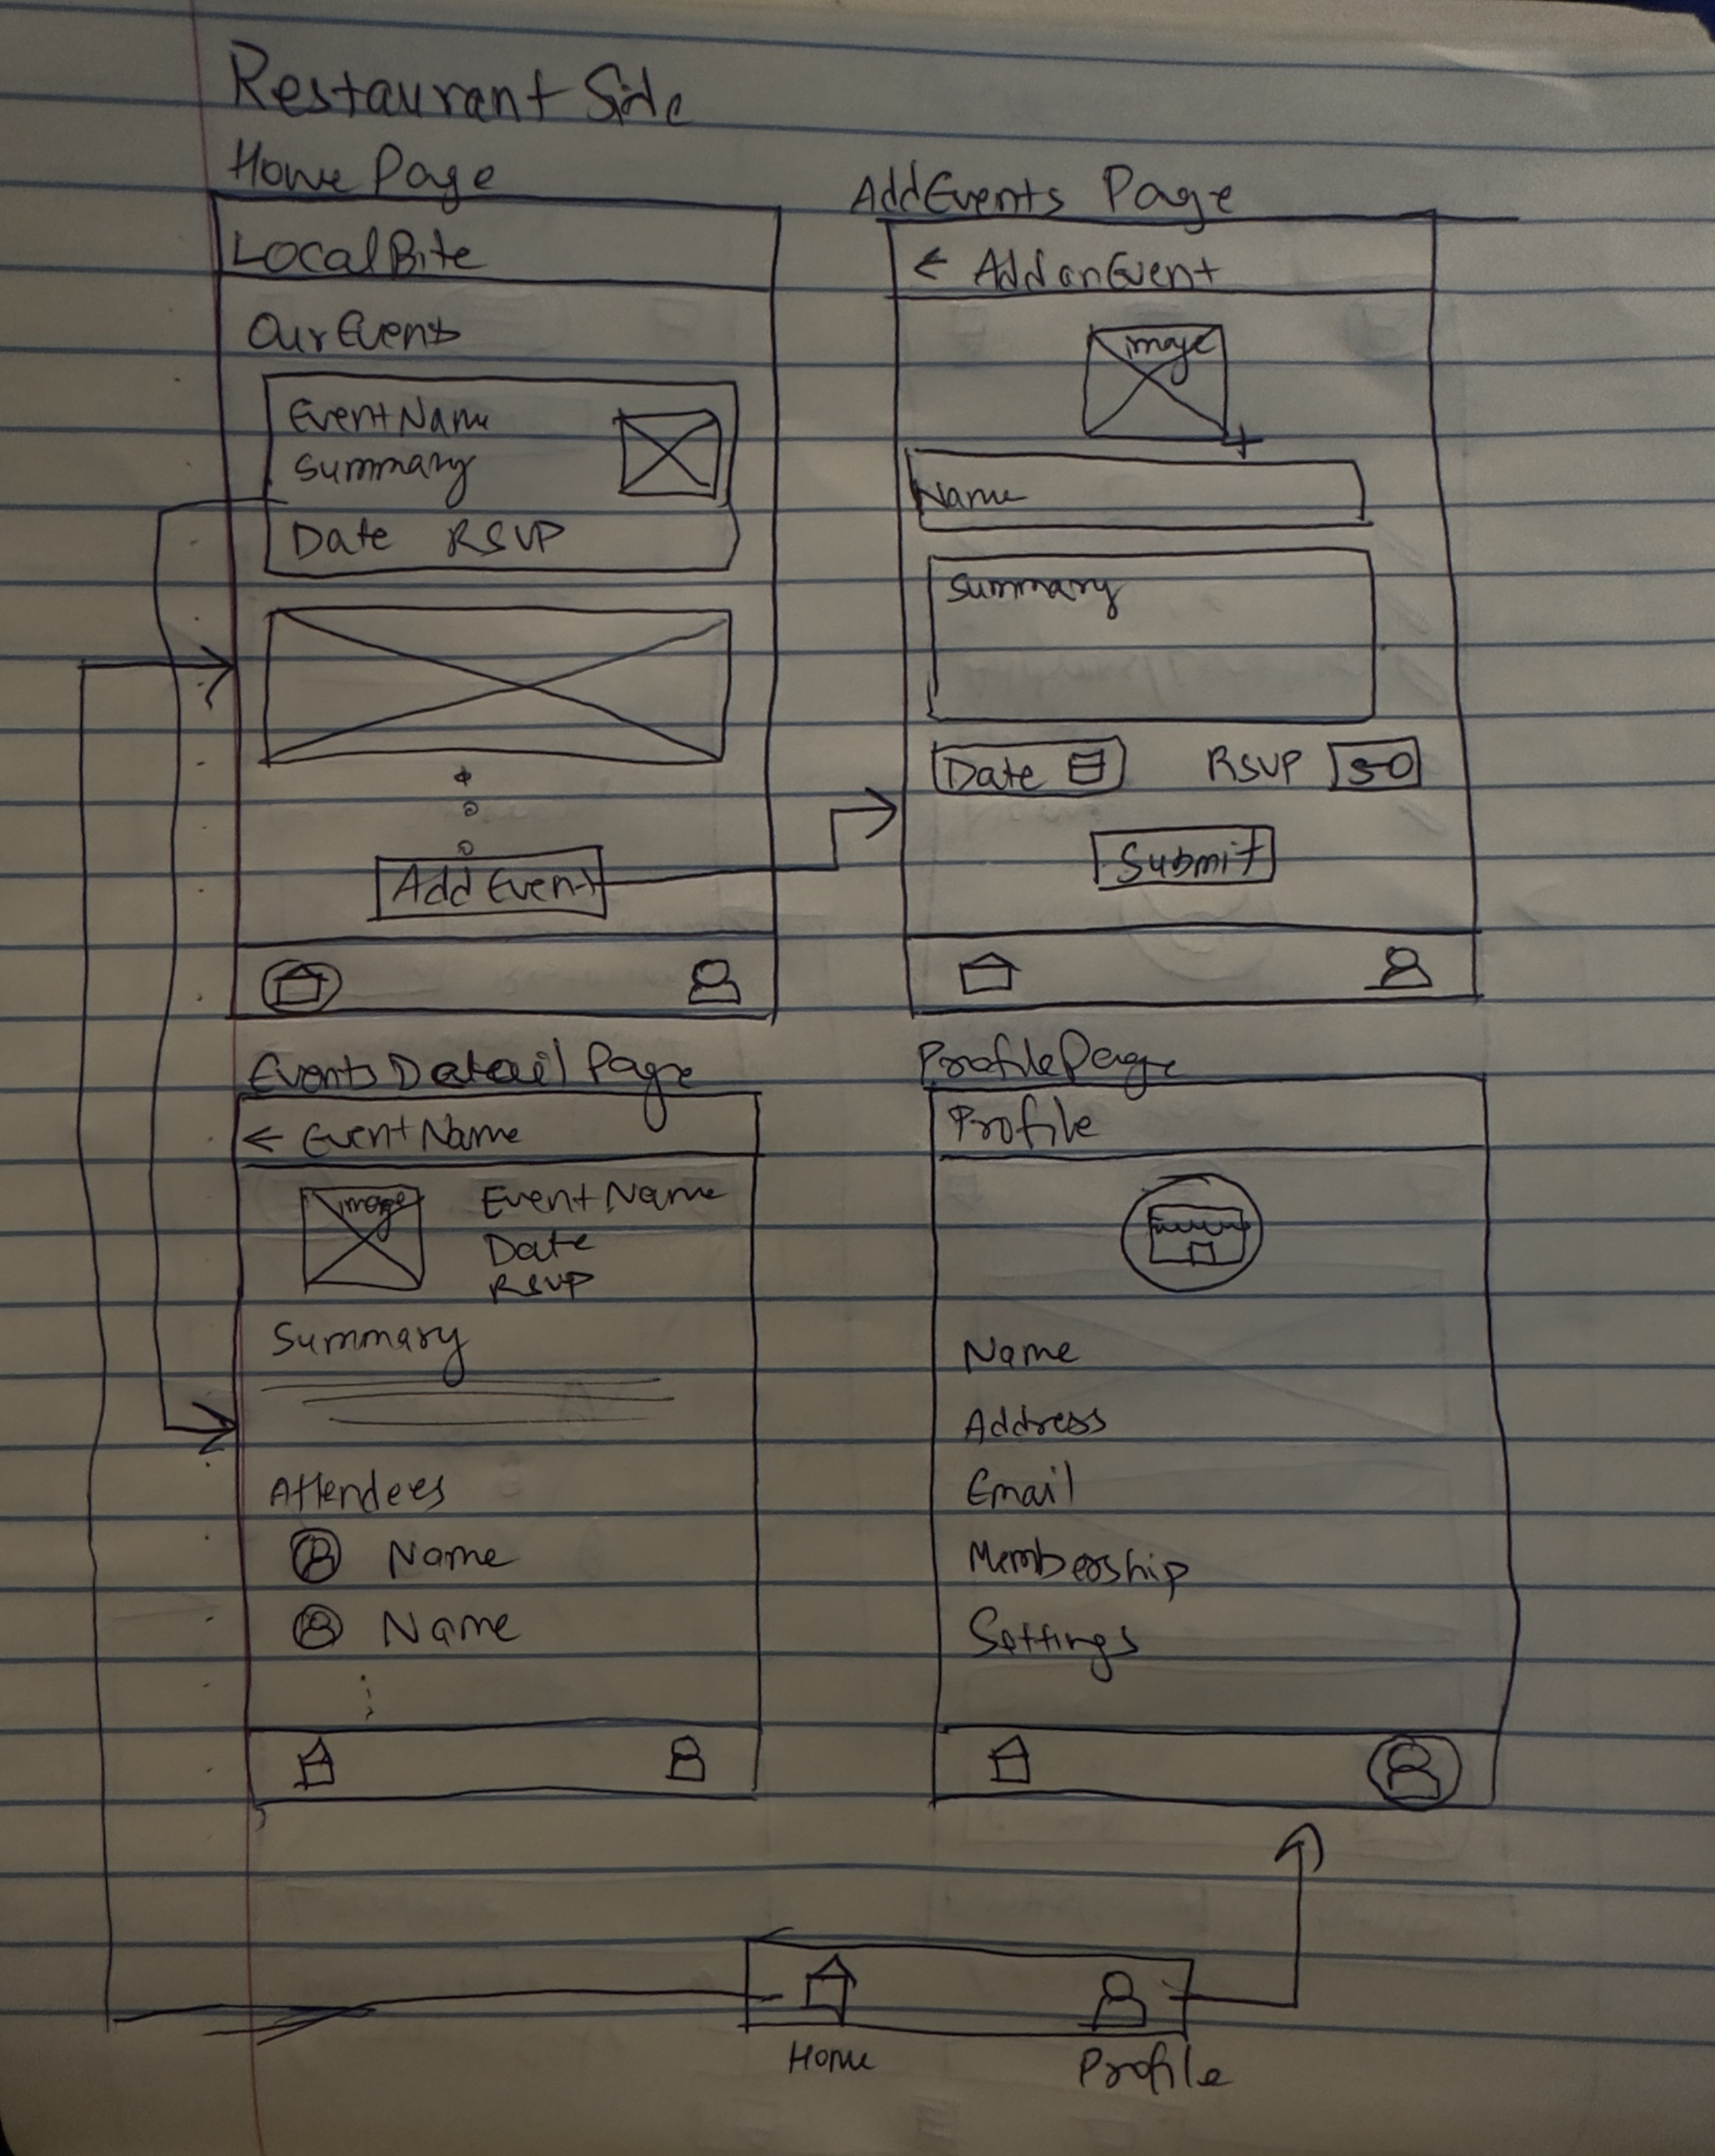 Restaurant Side
Home Page
LocalBite
Our Events
Event Name
Summary
Date RSVP
Add Event
Add Events Page
← Add an Event
image
+
Name
Summary
Date RSVP 50
Submit
Events Detail Page
← Event Name
image
Event Name
Date
RSVP
Summary
Attendees
Name
Name
Profile Page
Profile
Name
Address
Email
Membership
Settings
Home Profile